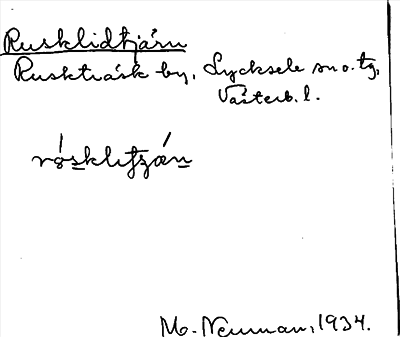 Rusklidtjärn
Ruskträsk by, Lycksele sn o. tg,
Västerb. l.
M. Neuman, 1934.